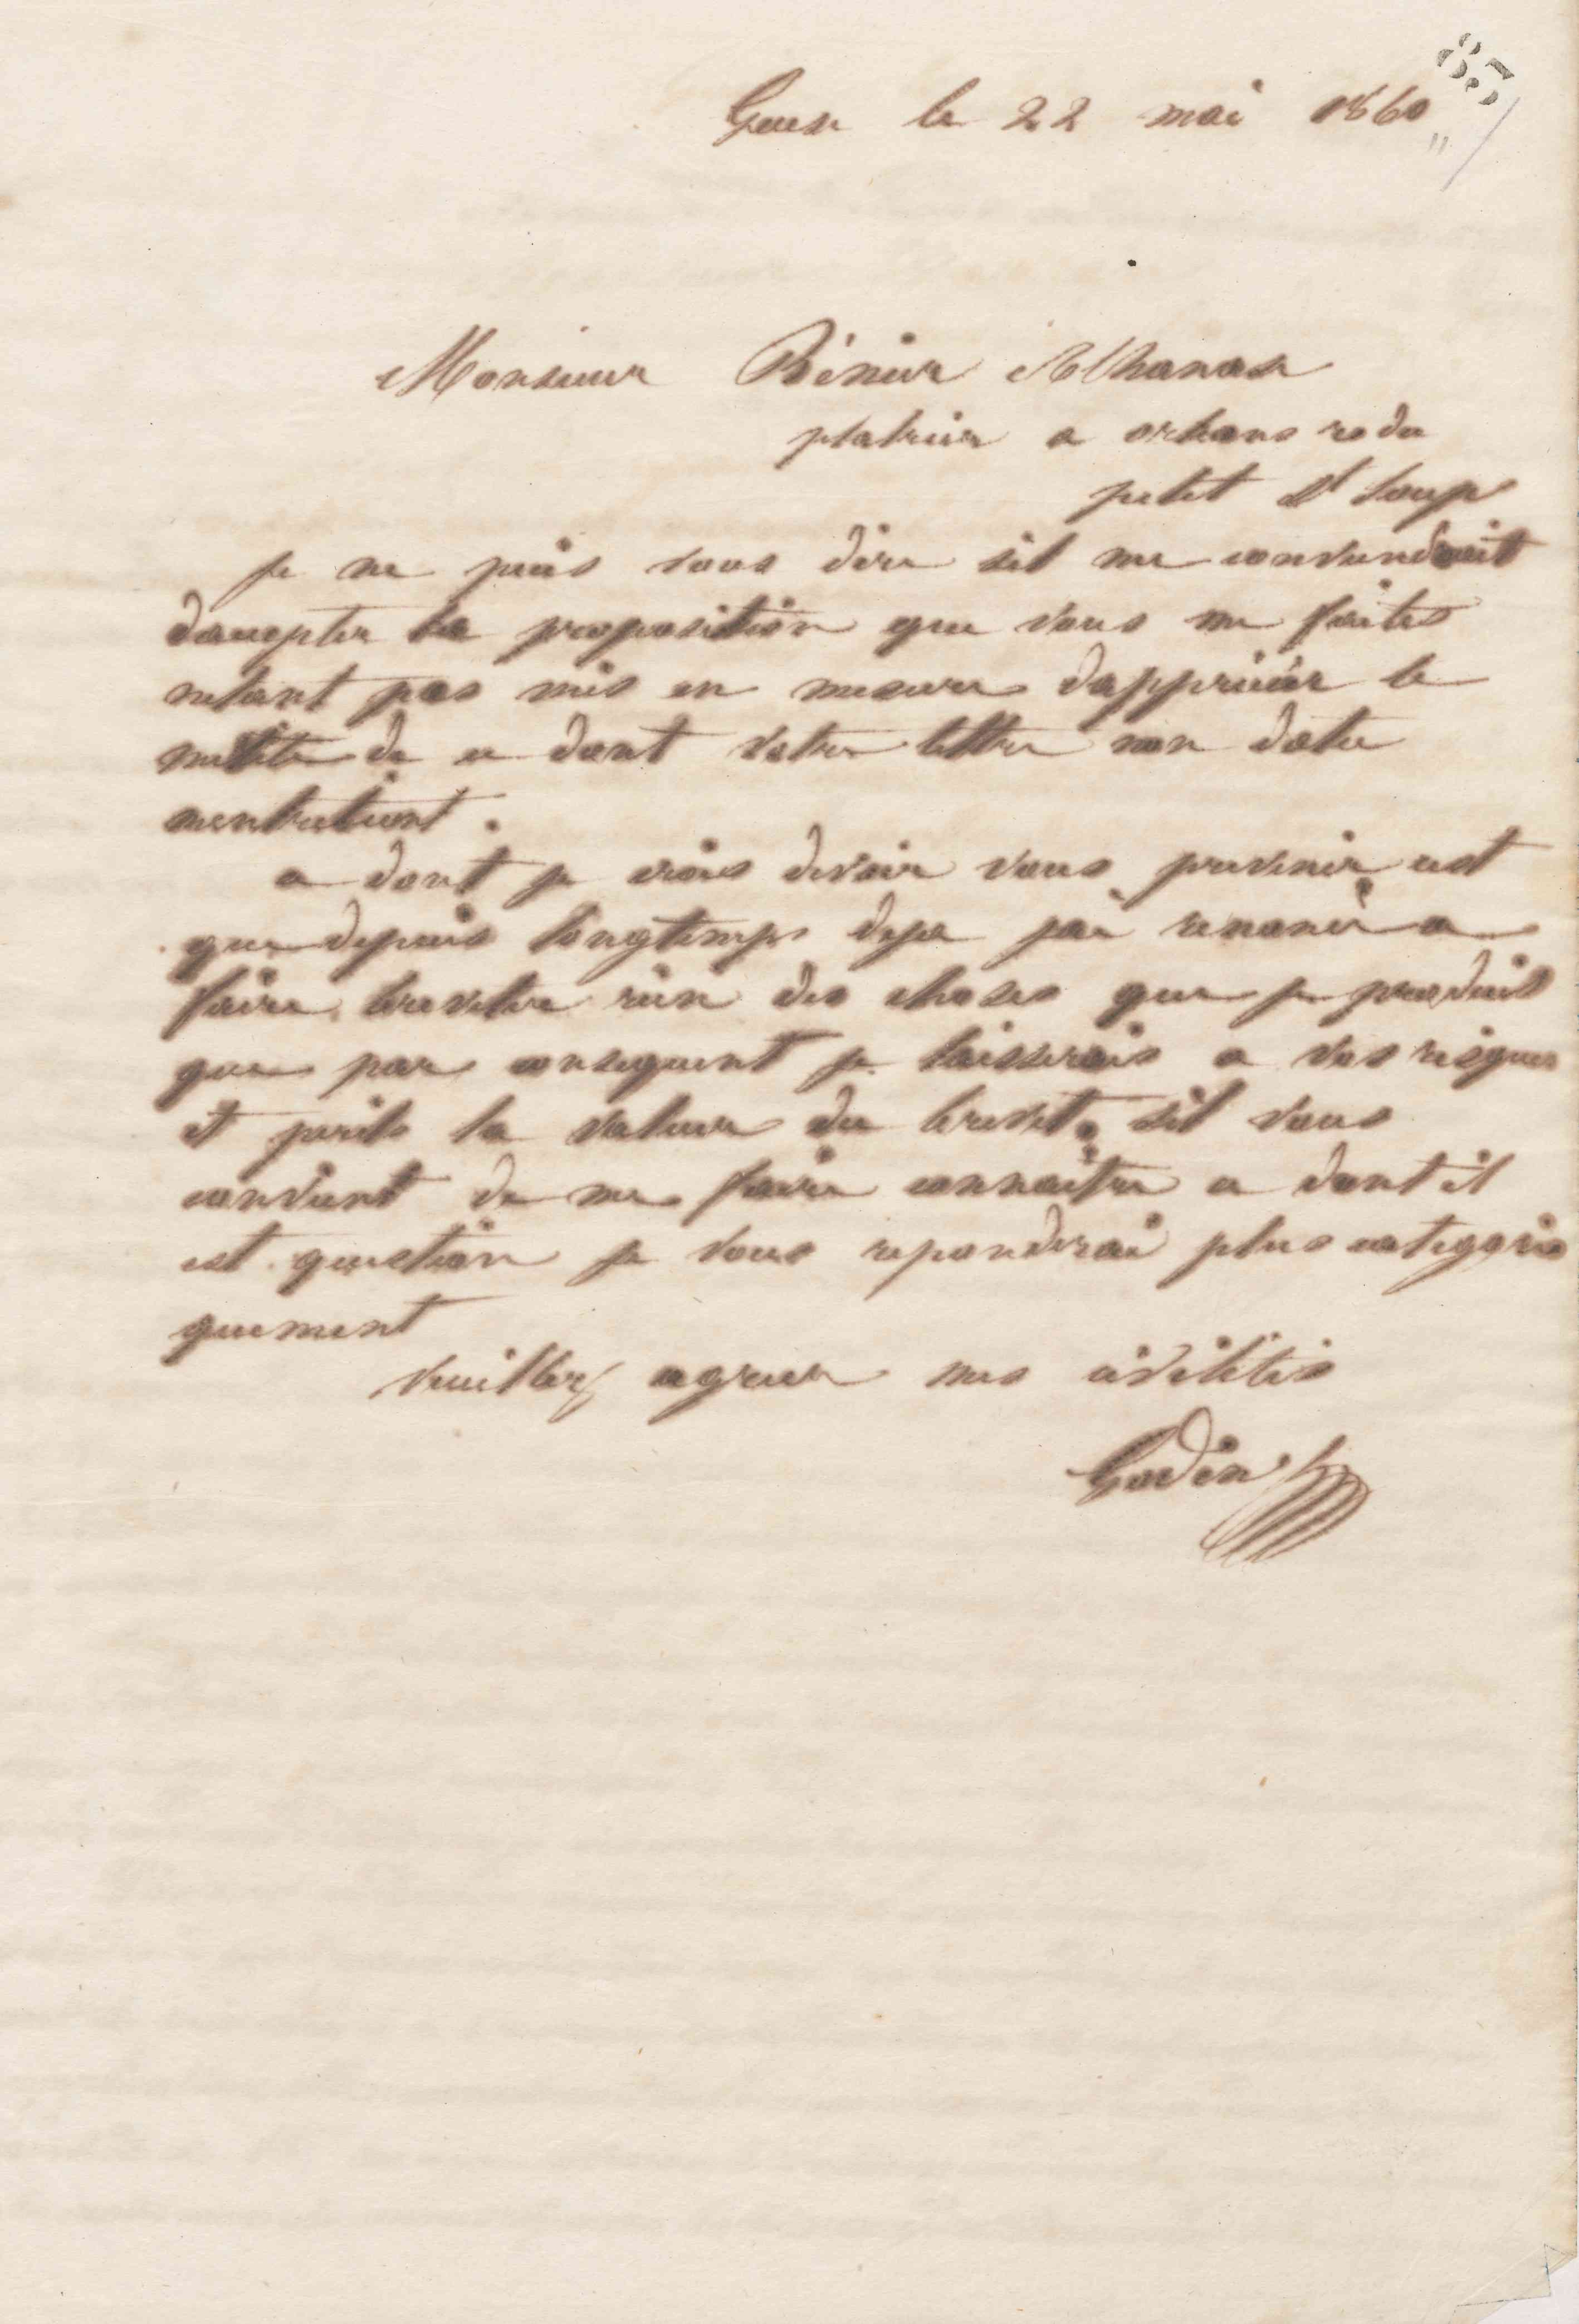 85
Guise le 22 mai 1860
Monsieur Bénier Athanase
platrier a orleans re du
petit St Loup
je ne puis vous dire sil me conviendrait
daccepter la proposition que vous me faites
netant pas mis en mesure dapprécier le
mérite de ce dont votre lettre non datée
mentretient.
ce dont je crois devoir vous prevenir cest
que depuis longtemps deja jai renoncé a
faire breveter rien des choses que je produit
que par consequent je laisserais a vos risques
et perils la valeur du brevet. sil vous
convient de me faire connaitre ce dont il
est question je vous repondrai plus categori
quement
veuillez agreer mes civilités
Godin